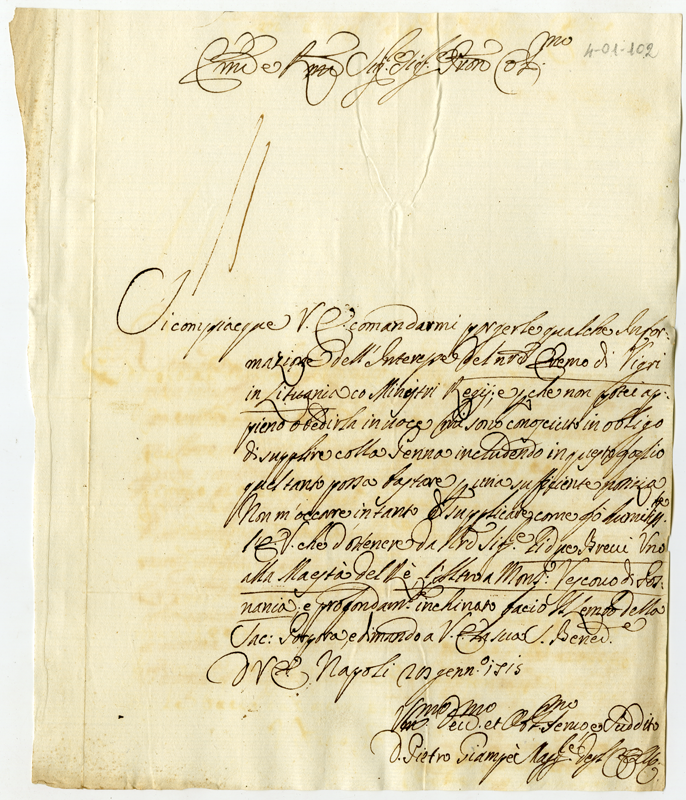 4-01-102
Em̃o e Rm̃o Sig.r Sig.r Pron Col.mo
Si compiacque V. E. comandarmi porgerle qualche Infor-
mazione dell'Interesse del nr̃o Eremo di Vigri
in Lituania co Ministri Regij, e p che non potei ap-
pieno obedirla in uoce mi sono conosciuto in obligo
di supplire colla Penna includendo in questo foglio
quel tanto possa bastare p una sufficiente notizia
Non m'occorre in tanto che supplicare come fò humilm.te
l'E. V. che d'ottenere da Nr̃o Sig.re li due Breui Uno
alla Maestà del Rè l'altro a Mons.r Vescouo di Pos-
nania, e profondam.te inchinato facio il lembo della
Sac: Porpora, e dimando a V. E. la sua S. Bened.e
D V. E. Napoli 20 genn.o 1715
Um.mo Deu.mo et Obl.mo Seruo e Suddito
D. Pietro Giampè Magg.re degl'